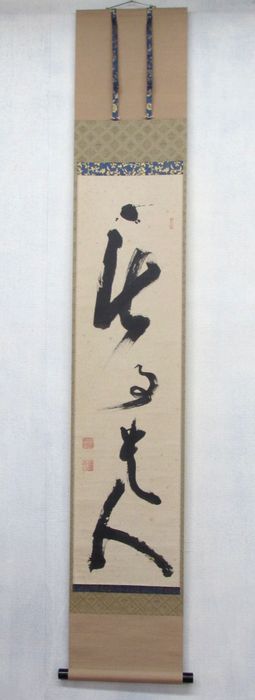 無事貴人